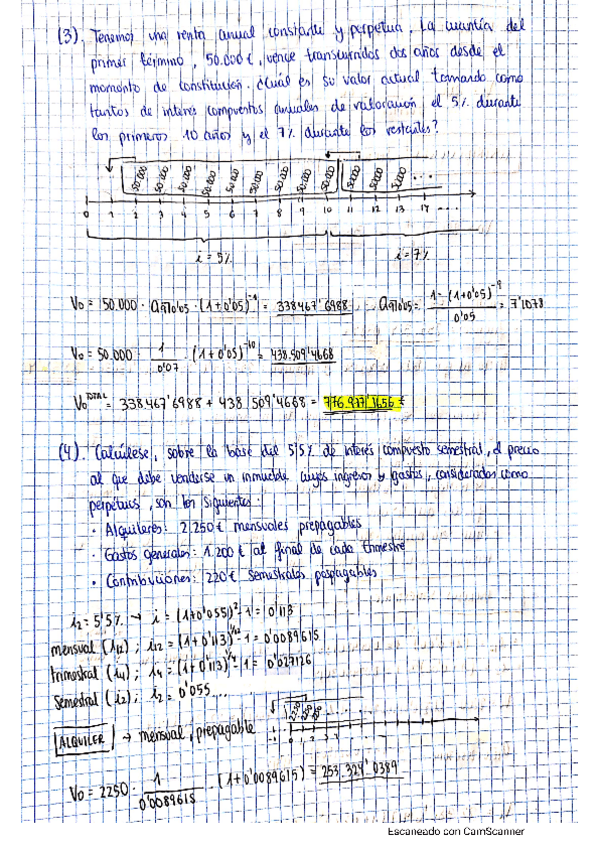 (3). Tenemos una renta anual constante y perpetua. La cuantía del
primer término, 50.000 €, vence transcurridos dos años desde el
momento de constitución. ¿Cuál es su valor actual tomando como
tantos de interés compuestos anuales de valoración el 5% durante
los primeros 10 años y el 7% durante los restantes?
50.000 50.000 50.000 50.000 50.000 50.000 50.000 50.000 50.000 50.000 50.000 50.000 ...
0 1 2 3 4 5 6 7 8 9 10 11 12 13 14 ....
i = 5% i = 7%
V₀ = 50.000 · a9¬0'05 · (1+0'05)⁻¹ = 338467'6988 a9¬0'05 = 1-(1+0'05)⁻⁹ / 0'05 = 7'1078
V₀ = 50.000 · 1/0'07 · (1+0'05)⁻¹⁰ = 438.509'4668
V₀ᵀᴼᵀᴬᴸ = 338.467'6988 + 438.509'4668 = 776.977'1656 €
(4). Calcúlese, sobre la base del 5'5% de interés compuesto semestral, el precio
al que debe venderse un inmueble cuyos ingresos y gastos, considerados como
perpetuos, son los siguientes:
· Alquileres: 2.250 € mensuales prepagables
· Gastos generales: 1.200 € al final de cada trimestre
· Contribuciones: 220 € semestrales pospagables
i₂ = 5'5% → i = (1+0'055)² - 1 = 0'113
mensual (i₁₂); i₁₂ = (1+0'113)^1/12 - 1 = 0'0089615
trimestral (i₄); i₄ = (1+0'113)^1/4 - 1 = 0'027126
Semestral (i₂); i₂ = 0'055
2250 2250 2250 ...
ALQUILER → mensual, prepagable
0 1 2 3
V₀ = 2250 · 1/0'0089615 · (1+0'0089615) = 253.324'0389
Escaneado con CamScanner